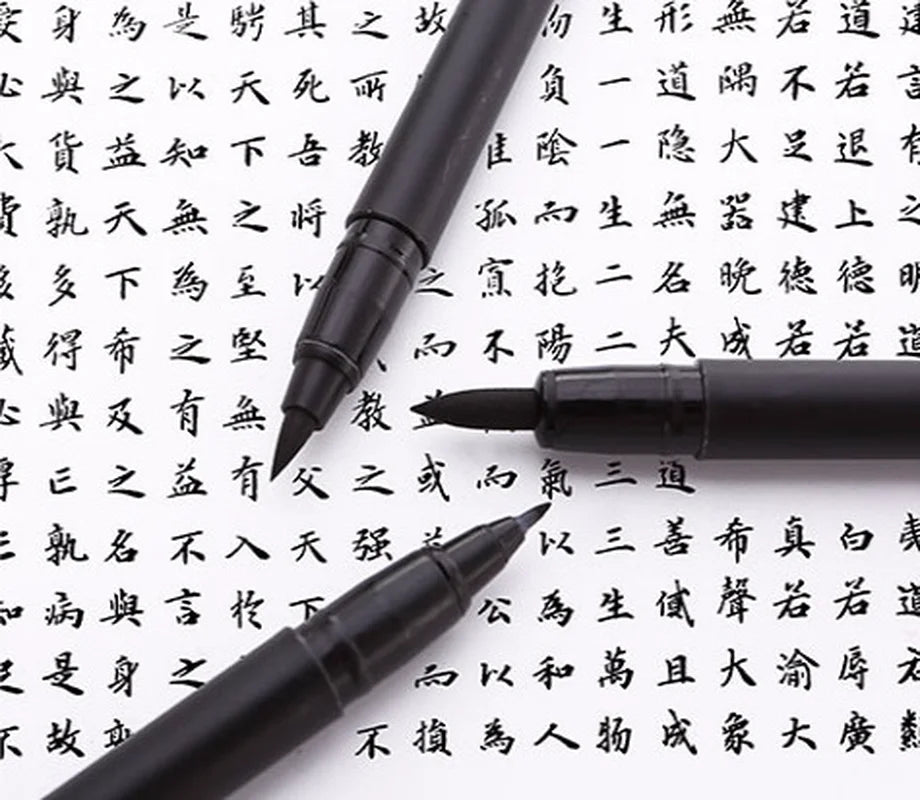 言有之明道夷道
道若退上德若白若辱廣
若不足建德若真若渝大
無隅大器晚成希聲大象
形道隐無名夫道善貸且成
生一一生二二三三生萬物
負陰而抱陽氣以為和人
孤寡不而公以為
故之而益或益而損
之所教教之强不
其死吾將以父天下
騁天下之至堅無有入於
是以知無為之有益不言之
為之益天下希及之名與身孰
身與貨孰多得與亡孰病是故
愛必大費多藏必厚知足不